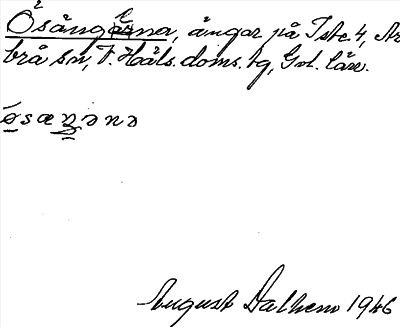 Ösängarna, ängar på Iste 4, Ar
brå sn, V. Häls. doms. tg, Gvl. län.
øsæŋənə
August Dalhem 1946